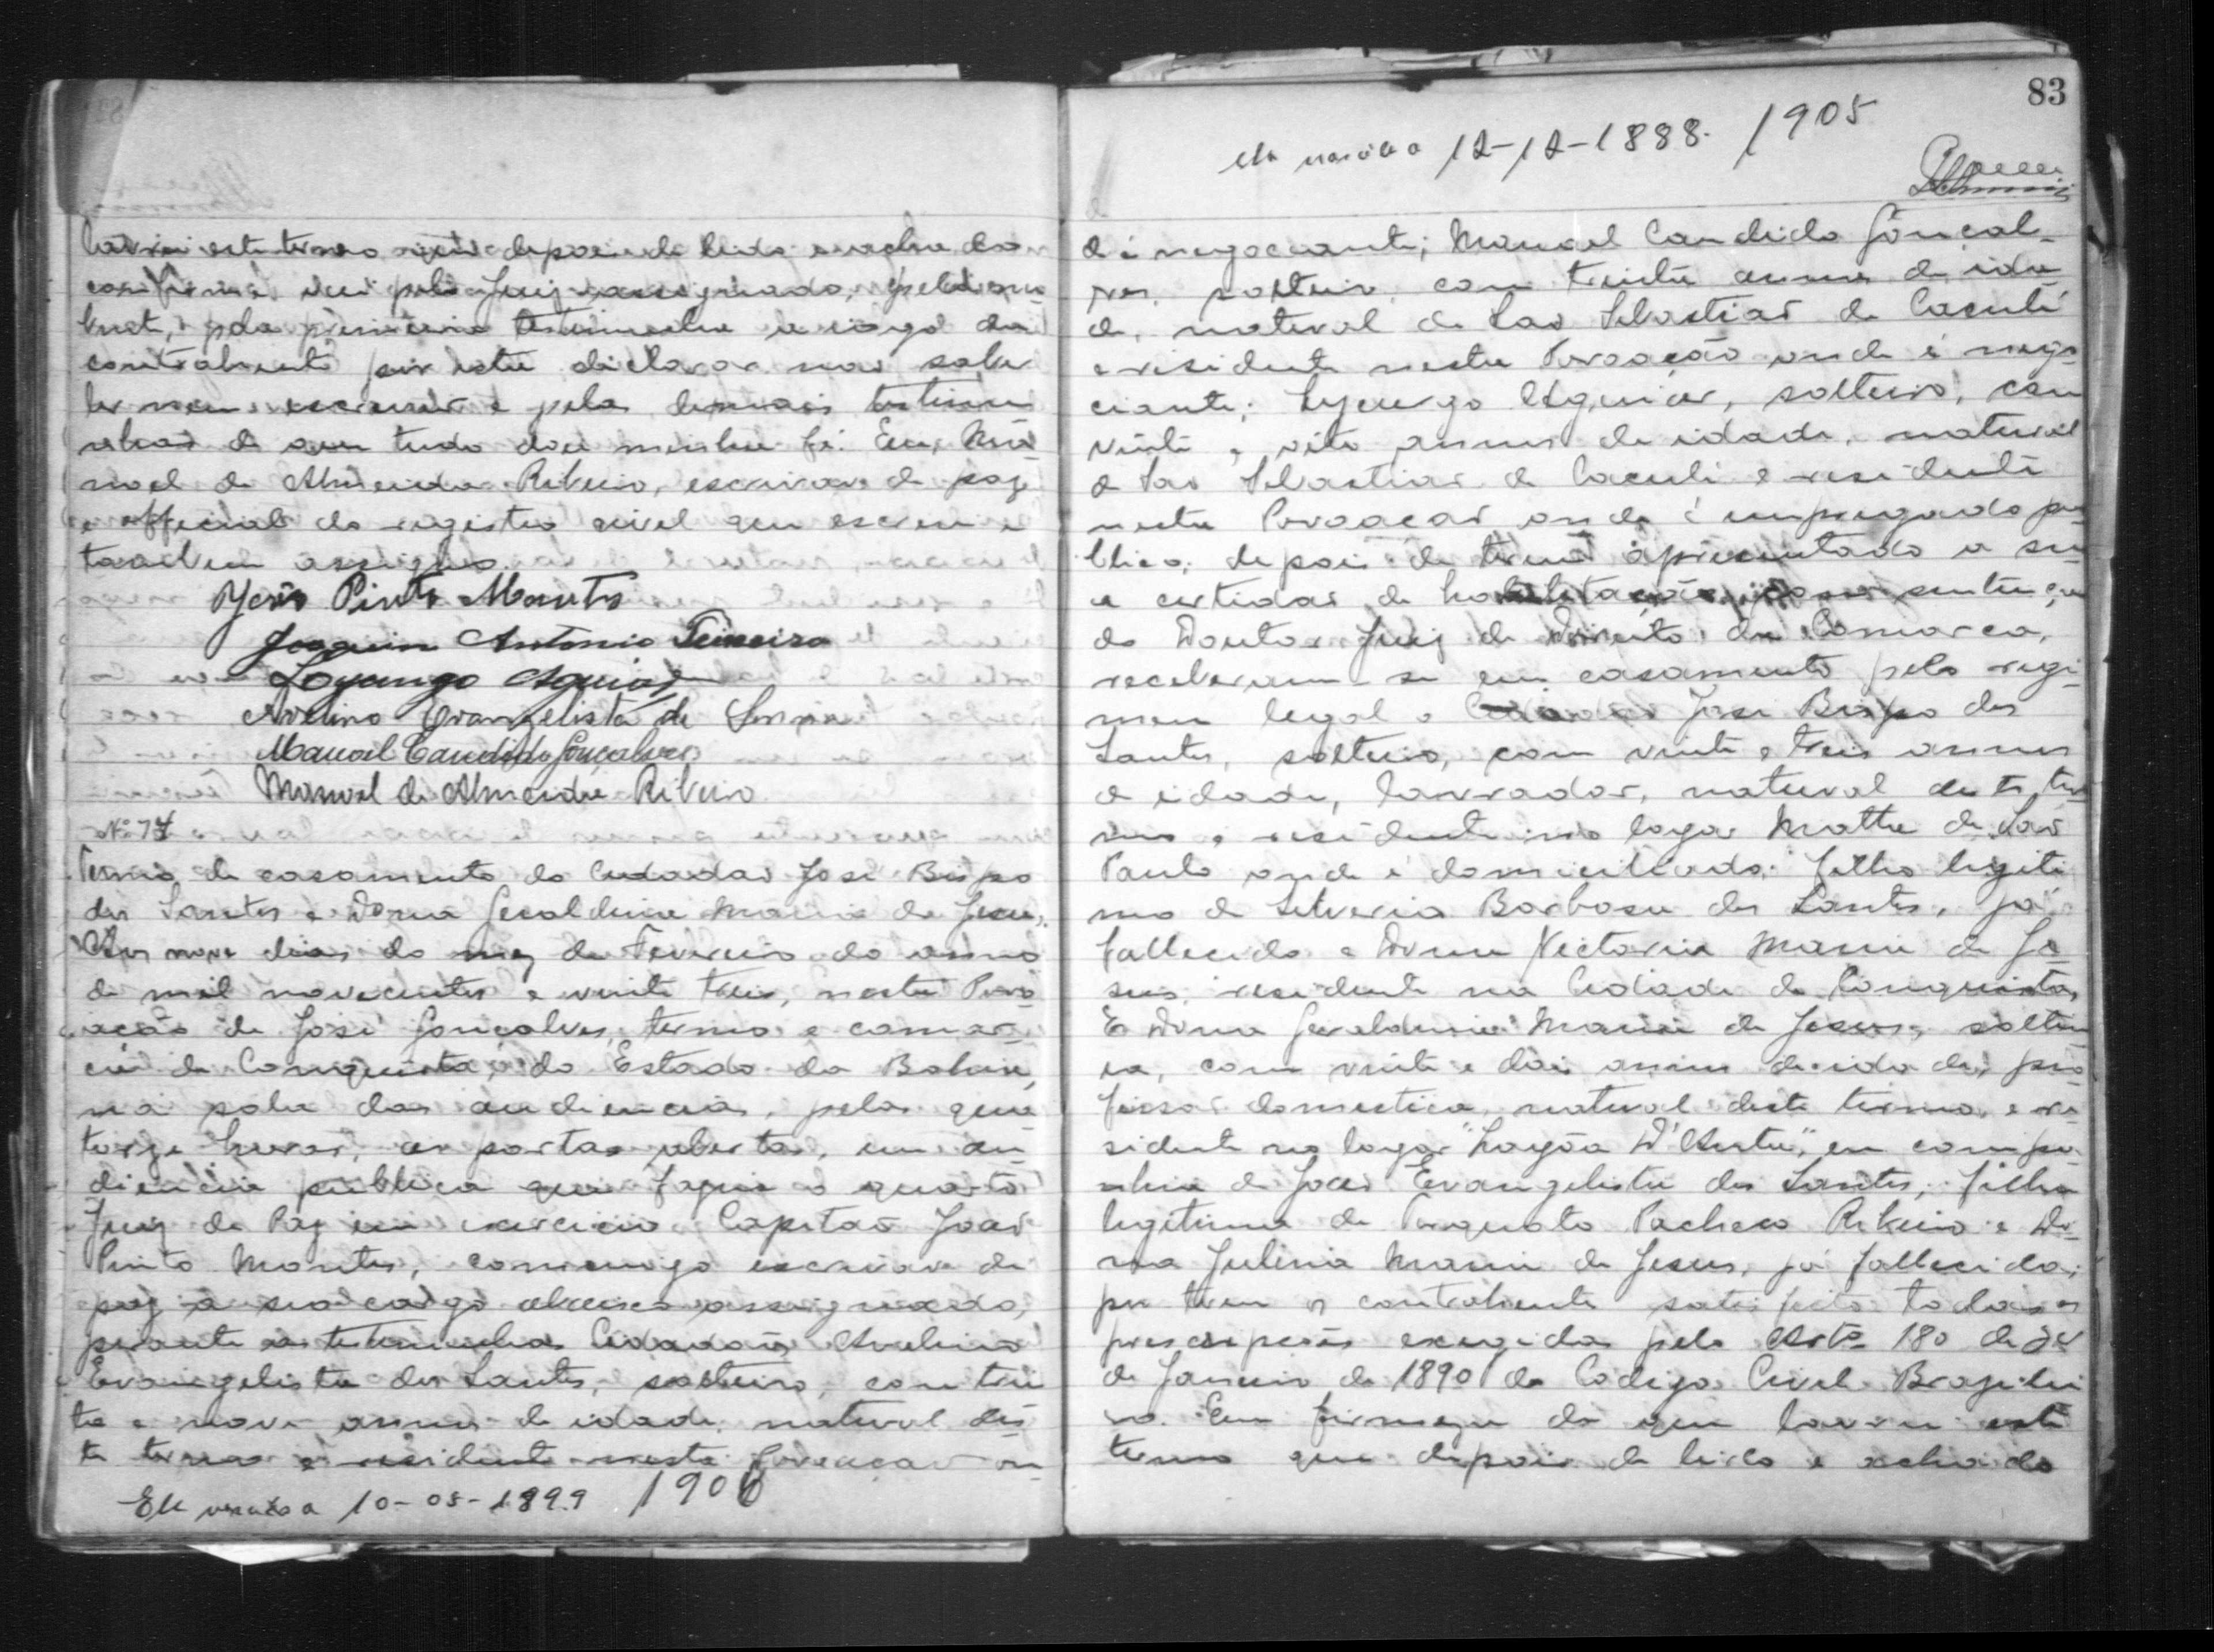 lavrei este termo que depois de lido e achado
conforme vai pelo Juiz assignado, pelo contra
hente, pela primeira testemunha a rogo da
contrahente por esta declarar nao saber
ler nem escrever e pelas demais testemu
nhas do que tudo dou minha fé. Eu, Ma
noel de Almeida Ribeiro, escrivao de paz
e official do registro civel que escrevi e
tambem assigno.
João Pinto Montes
Joaquim Antonio Teixeira
Lycurgo Aguiar
Avelino Evangelista de
Manoel Candido Gonçalves
Manoel de Almeida Ribeiro
Nº 74
Termo de casamento do Cidadao José Bispo
dos Santos e Dona Geraldina Maria de Jesus.
Aos nove dias do mez de Fevereiro do anno
de mil novecentos e vinte tres, nesta Povo
ação de José Gonçalves, termo e comar-
ca de Conquista, do Estado da Bahia,
na sala das audiencias, pelas qua
torze horas, as portas abertas, em au-
diencia publica que fazia o quarto
Juiz de Paz em exercicio Capitão João
Pinto Montes, commigo escrivao de
paz a seo cargo abaixo assignado,
perante as testemunhas Cidadão Avelino
Evangelista dos Santos, solteiro, com trin
ta e nove annos de idade, natural des
te termo e residente nesta Povoaçao on
Ele nascido a 10-05-1899 1906
83
Ela nascida a 12-12-1888. 1905
de é negociante; Manoel Candido Gonçal-
ves, solteiro, com trinta annos de ida
de, natural de Sao Sebastiao de Caculé
e residente nesta Povoação onde é nego
ciante; Lycurgo Aguiar, solteiro, com
vinte e oito annos de idade, natural
de Sao Sebastiao de Caculé e residente
nesta Povoaçao onde é empregado pu
blico; depois de terem apresentado a su
a certidao de habilitação com sentença
do Doutor Juiz de Direito da Comarca,
receberam-se em casamento pelo regi-
men legal o José Bispo dos
Santos, solteiro, com vinte e tres annos
de idade, lavrador, natural deste ter
mo e residente no logar Matta de Sao
Paulo onde é domiciliado; filho legiti
mo de Silveria Barbosa dos Santos, já
fallecido e Dona Victoria Maria de Je
sus, residente na Cidade de Conquista,
E Dona Geraldina Maria de Jesus, soltei
ra, com vinte e dois annos de idade, pro
fissao domestica, natural deste termo, e re
sidente no logar "Lagôa D'Anta", em compa
nhia de João Evangelista dos Santos; filha
legitima de Torquato Pacheco Ribeiro e Do-
na Julinia Maria de Jesus, já fallecida;
por terem os contrahentes satisfeito todas as
prescripções exegidas pelo Artº 180 de 24
de Janeiro de 1890 do Codigo Civel Brazilei
ro. Em firmeza do que lavrei este
termo que depois de lido e achado